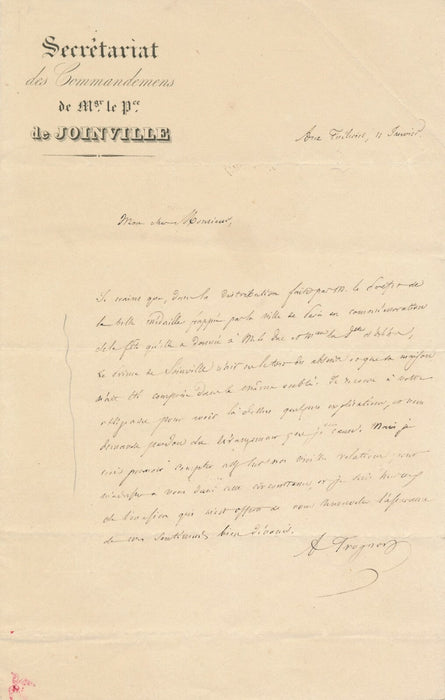 Secrétariat
des Commandemens
de Mgr le Pce
de JOINVILLE
11 Janvier
Mon cher Monsieur,
que, dans la distribution faite par M. le Préfet de
la belle médaille frappée par la ville de en commémoration
de la fête qu'elle a donnée à M. le duc et Mme la Dsse
Le Prince de Joinville et que sa maison
compris dans le même oubli. Je à votre
obligeance pour avoir là-dessus quelques explications, et vous
demande pardon du que je vous cause. Mais je
compter sur nos vieilles relations pour
à vous dans cette circonstance, et je suis heureux
de l'occasion qui m'est offerte de vous renouveler l'assurance
de mes sentimens bien dévoués.
A Trognon